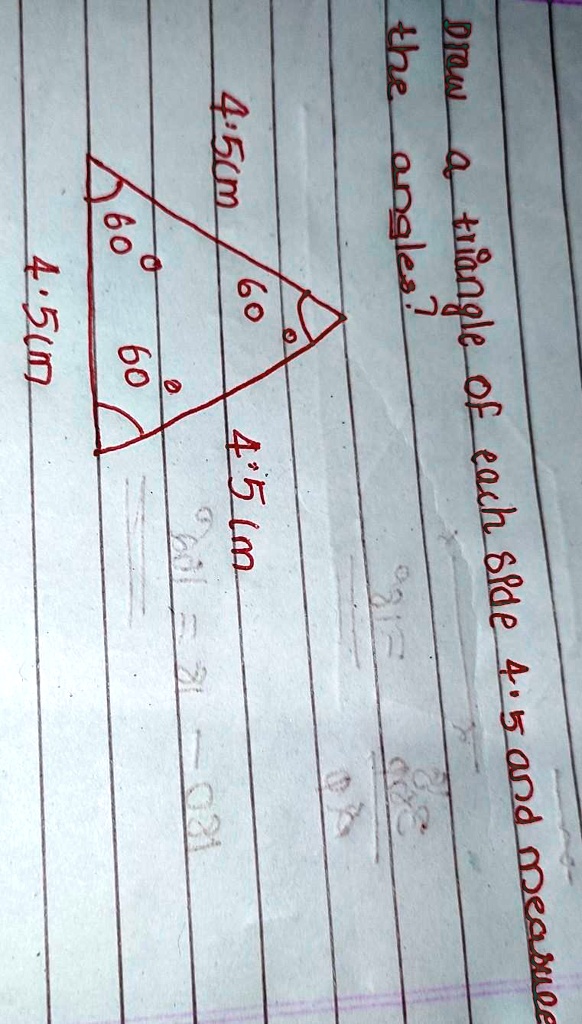 Draw a triangle of each side 4.5 and measure
the angles?
60°
4.5cm
4.5cm
60°
60°
4.5cm